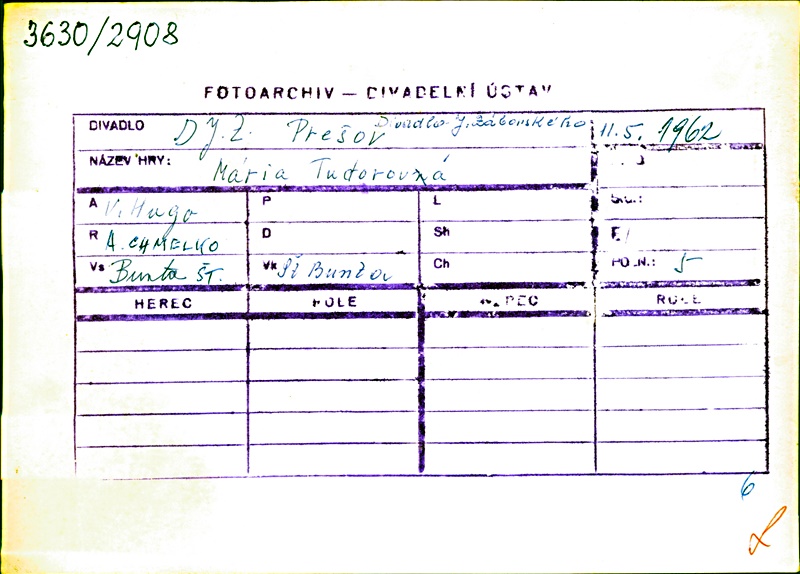 3630/2908
FOTOARCHIV — DIVADELNÍ ÚSTAV
DIVADLO DJ.Z. Prešov Divadlo J. Záborského 11.5. 1962
NÁZEV HRY: Mária Tudorovná
A V. Hugo P L
R A. CHMELKO D Sh
Vs Bunta ŠT. Vk Št Bunta Ch POZN.: 5
HEREC ROLE HEREC ROLE
6